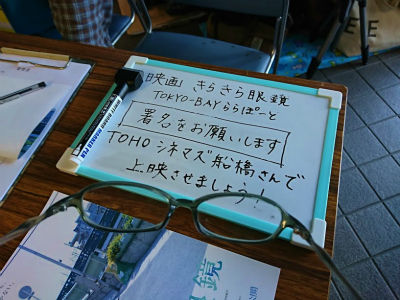 映画 きらきら眼鏡
TOKYO-BAYららぽーと
署名をお願いします
TOHOシネマズ船橋さんで
上映させましょう!
鏡